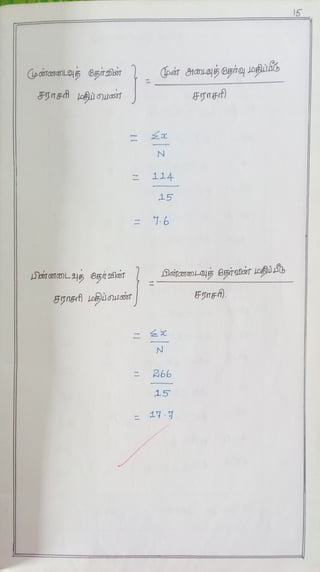 15
முன்னடைவுத் தேர்வின் } = முன் அடைவுத் தேர்வு மதிப்பீடு
சராசரி மதிப்பெண் சராசரி
= Σx
N
= 114
15
= 7.6
பின்னடைவுத் தேர்வின் } = பின்னடைவுத் தேர்வின் மதிப்பீடு
சராசரி மதிப்பெண் சராசரி.
= Σx
N
= 266
15
= 17.7